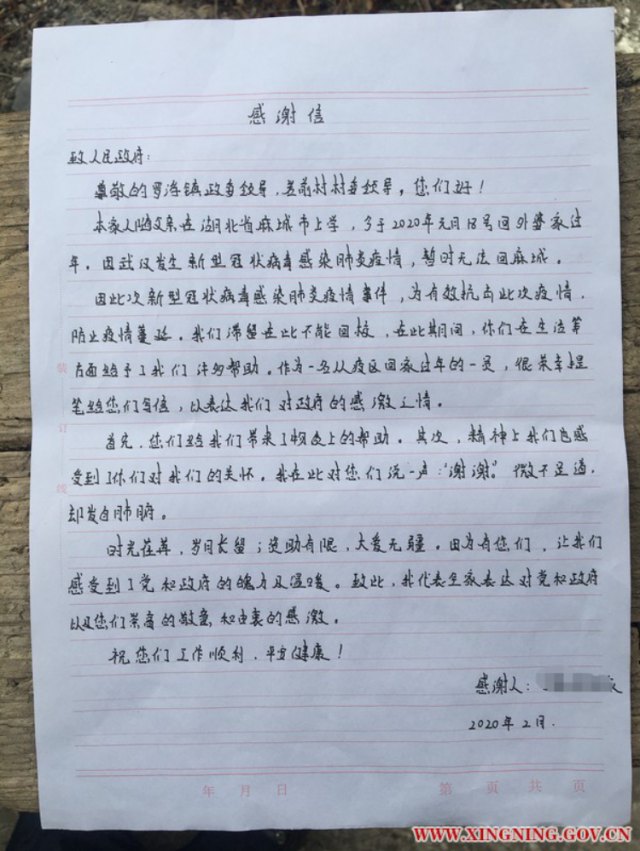 感谢信
致人民政府：
尊敬的罗浮镇政委领导，村村委领导，您们好！
本家人随父亲在湖北省麻城市上学，予于2020年元月18号回外婆家过
年。因武汉发生新型冠状病毒感染肺炎疫情，暂时无法回麻城。
因此次新型冠状病毒感染肺炎疫情事件，为有效抗击此次疫情，
防止疫情蔓延。我们滞留在此不能回校，在此期间，你们在生活等
方面给予了我们许多帮助。作为一名从疫区回家过年的一员，很荣幸提
笔给您们写信，以表达我们对政府的感激之情。
首先，您们给我们带来了物质上的帮助。其次，精神上我们也感
受到了你们对我们的关怀。我在此对您们说一声：“谢谢”。微不足道，
却发自肺腑。
时光荏苒，岁月长留；资助有限，大爱无疆。因为有您们，让我们
感受到了党和政府的魄力及温暖。致此，我代表全家表达对党和政府
以及您们崇高的敬意和由衷的感激。
祝您们工作顺利，平安健康！
感谢人：
2020年2月.
装
订
线
年 月 日
第 页 共 页
WWW.XINGNING.GOV.CN